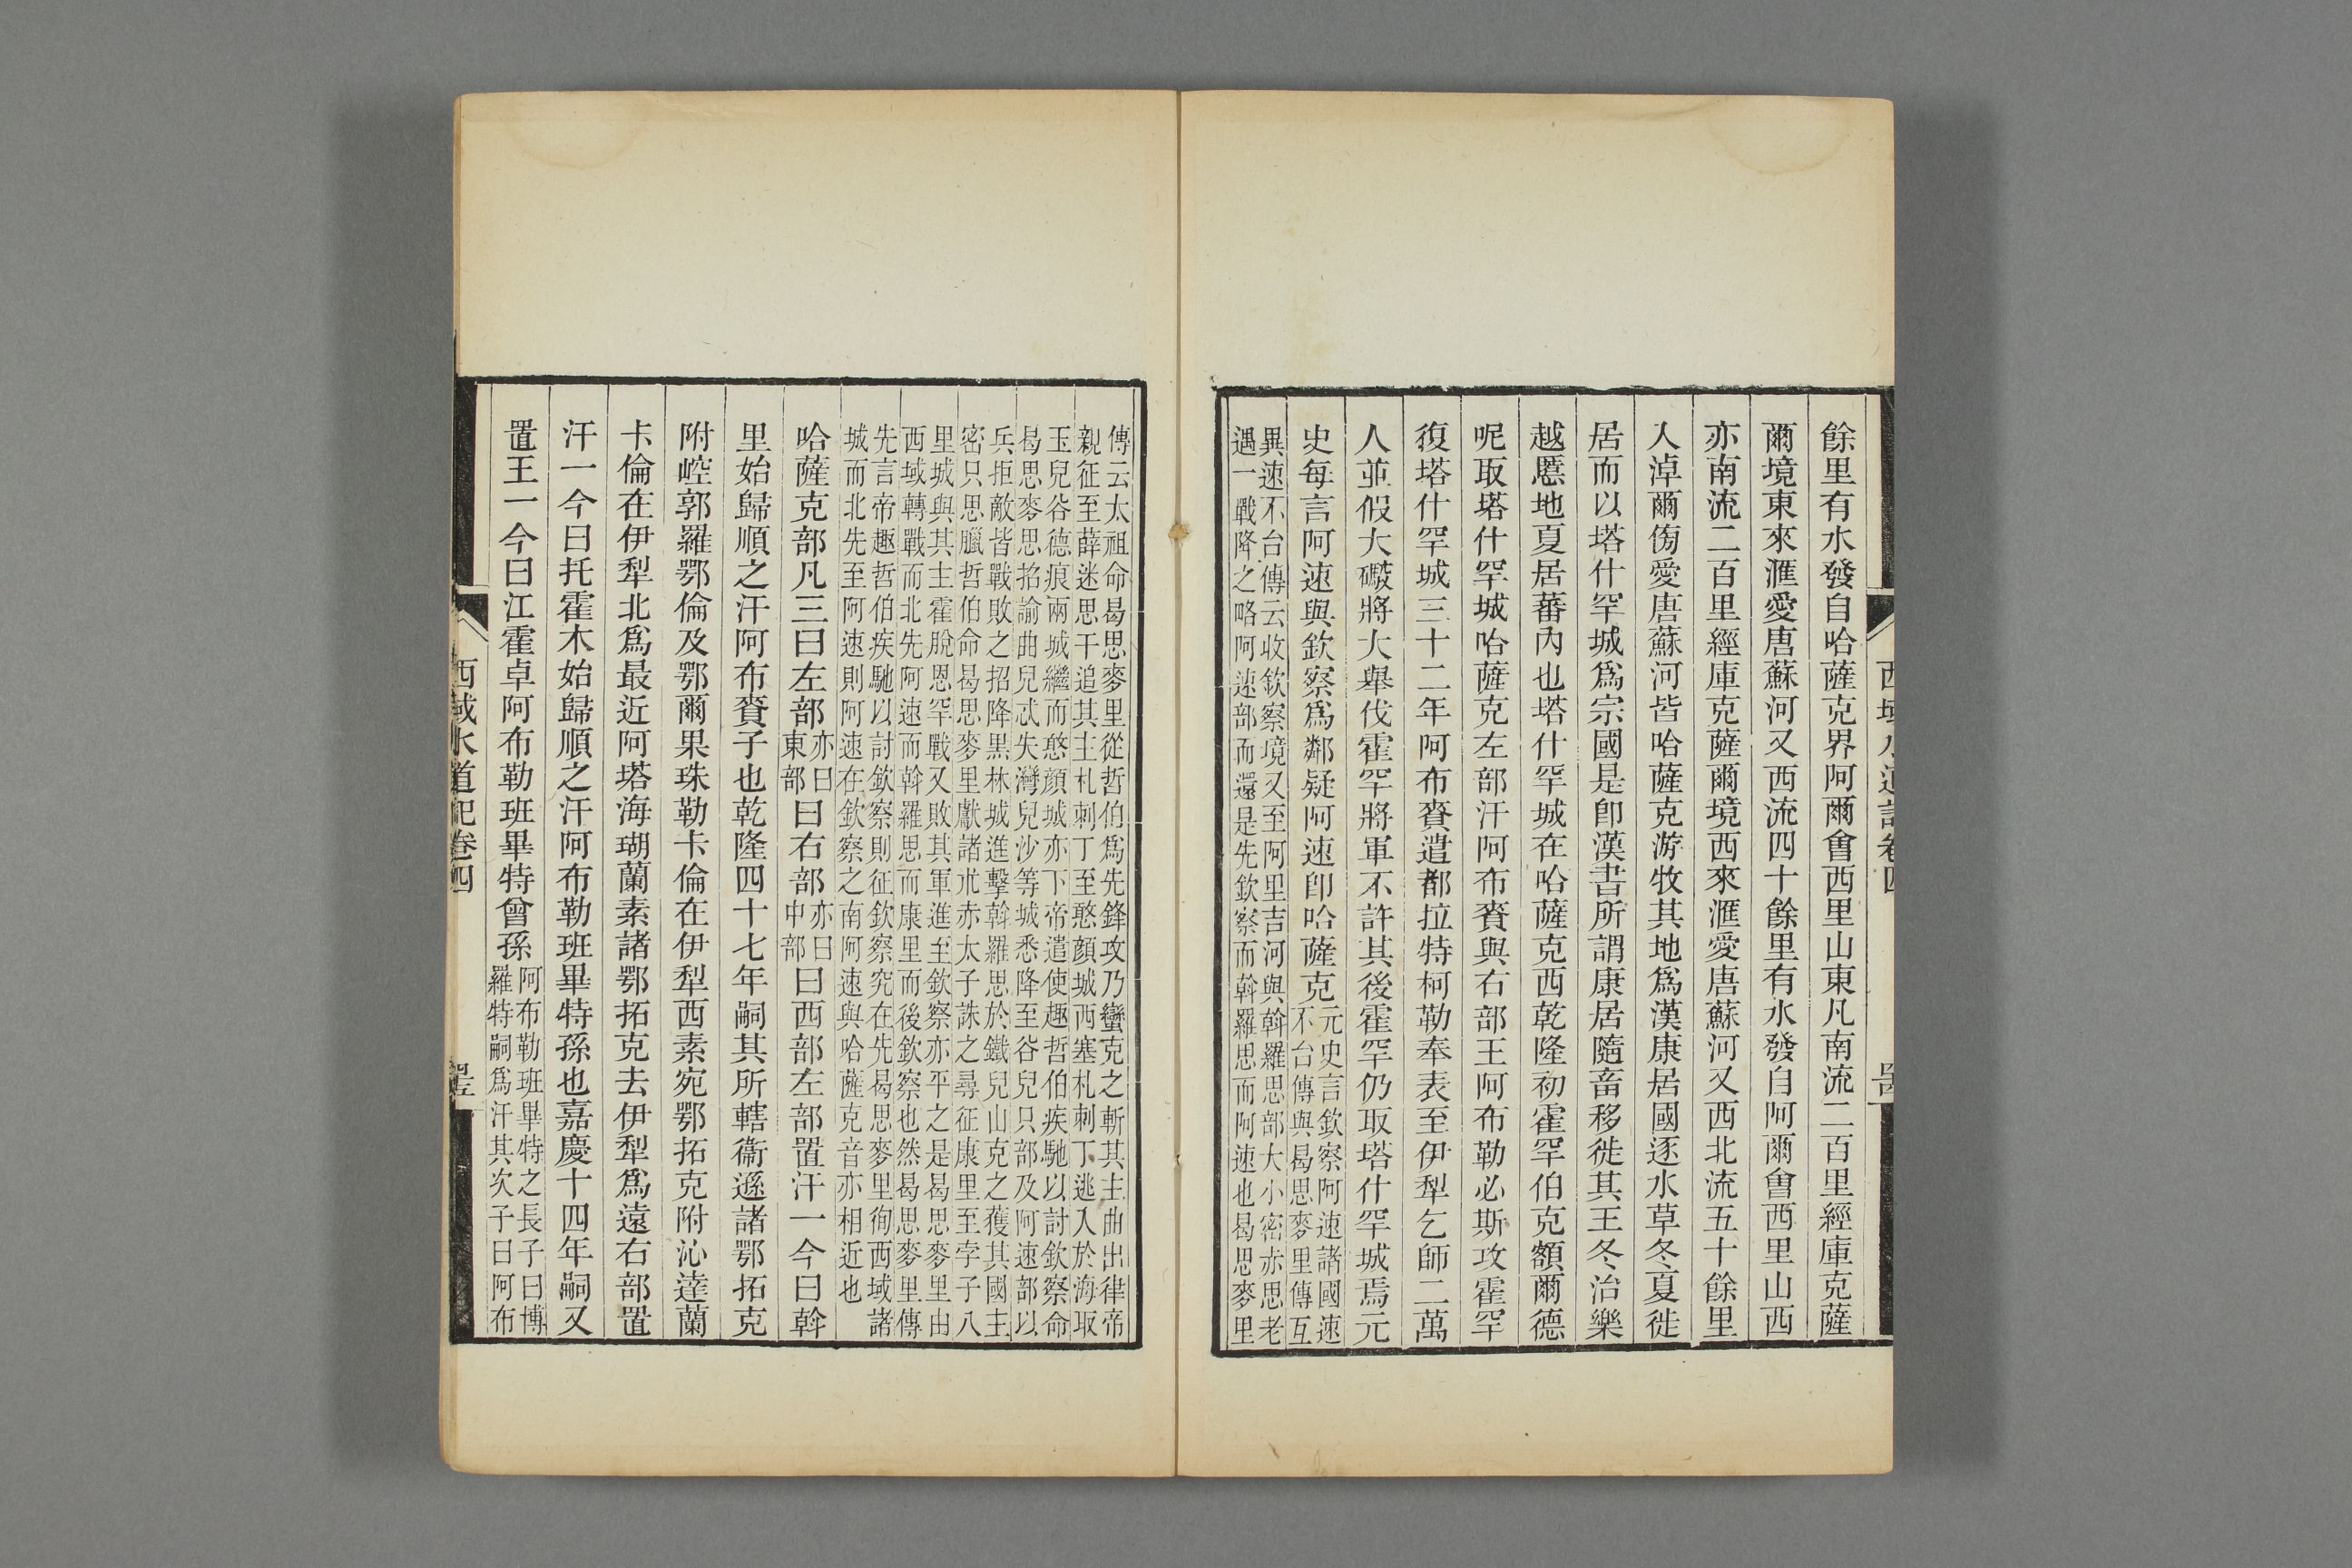 餘里有水發自哈薩克界阿爾會西里山東凡南流二百里經庫克薩
爾境東來滙愛唐蘇河又西流四十餘里有水發自阿爾會西里山西
亦南流二百里經庫克薩爾境西來滙愛唐蘇河又西北流五十餘里
入淖爾傍愛唐蘇河皆哈薩克游牧其地爲漢康居國逐水草冬夏徙
居而以塔什罕城爲宗國是卽漢書所謂康居隨畜移徙其王冬治樂
越匿地夏居蕃內也塔什罕城在哈薩克西乾隆初霍罕伯克額爾德
呢取塔什罕城哈薩克左部汗阿布賚與右部王阿布勒必斯攻霍罕
復塔什罕城三十二年阿布賚遣都拉特柯勒奉表至伊犁乞師二萬
人並假大礮將大舉伐霍罕將軍不許其後霍罕仍取塔什罕城焉元
史每言阿速與欽察爲鄰疑阿速卽哈薩克
元史言欽察阿速諸國速
不台傳與曷思麥里傳互
異速不台傳云收欽察境又至阿里吉河與斡羅思部大小密赤思老
遇一戰降之略阿速部而還是先欽察而斡羅思而阿速也曷思麥里
傳云太祖命曷思麥里從哲伯爲先鋒攻乃蠻克之斬其主曲出律帝
親征至薛迷思干追其主札剌丁至憨顔城西塞札剌丁逃入於海取
玉兒谷德痕兩城繼而憨顔城亦下帝遣使趣哲伯疾馳以討欽察命
曷思麥思招諭曲兒忒失灣兒沙等城悉降至谷兒只部及阿速部以
兵拒敵皆戰敗之招降黑林城進擊斡羅思於鐵兒山克之獲其國主
密只思臘哲伯命曷思麥里獻諸朮赤太子誅之尋征康里至孛子八
里城與其主霍脫思罕戰又敗其軍進至欽察亦平之是曷思麥里由
西域轉戰而北先阿速而斡羅思而康里而後欽察也然曷思麥里傳
先言帝趣哲伯疾馳以討欽察則征欽察究在先曷思麥里徇西域諸
城而北先至阿速則阿速在欽察之南阿速與哈薩克音亦相近也
哈薩克部凡三曰左部亦曰東部曰右部亦曰中部曰西部左部置汗一今曰斡
里始歸順之汗阿布賚子也乾隆四十七年嗣其所轄衞遜諸鄂拓克
附崆郭羅鄂倫及鄂爾果珠勒卡倫在伊犁西素宛鄂拓克附沁達蘭
卡倫在伊犁北爲最近阿塔海瑚蘭素諸鄂拓克去伊犁爲遠右部置
汗一今曰托霍木始歸順之汗阿布勒班畢特孫也嘉慶十四年嗣又
置王一今曰江霍卓阿布勒班畢特曾孫
阿布勒班畢特之長子曰博
羅特嗣爲汗其次子曰阿布
西域水道記卷四